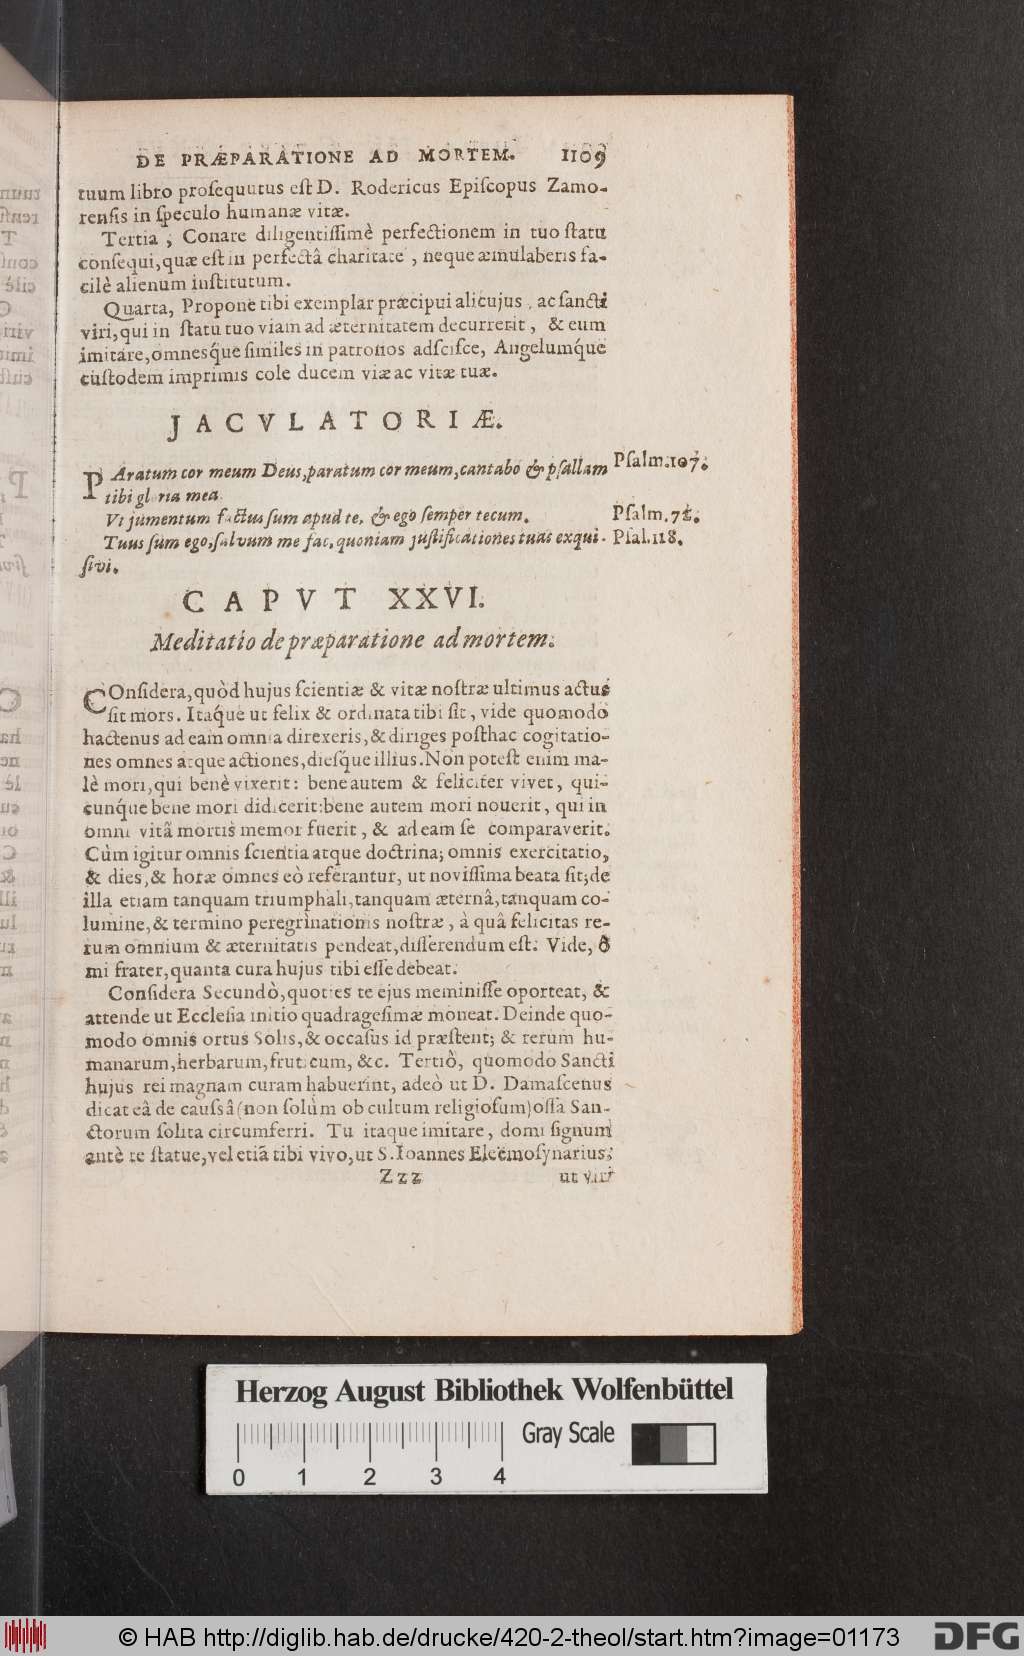 DE PRÆPARATIONE AD MORTEM. 1109
tuum libro prosequutus est D. Rodericus Episcopus Zamo-
rensis in speculo humanæ vitæ.
Tertia, Conare diligentissimè perfectionem in tuo statu
consequi, quæ est in perfectâ charitate, neque æmulaberis fa-
cilè alienum institutum.
Quarta, Propone tibi exemplar præcipui alicujus, ac sancti
viri, qui in statu tuo viam ad æternitatem decurrerit, & eum
imitare, omnesq́ue similes in patronos adscisce, Angelumq́ue
custodem imprimis cole ducem viæ ac vitæ tuæ.
JACVLATORIÆ.
PAratum cor meum Deus, paratum cor meum, cantabo & psallam Psalm. 107.
tibi gloria mea
Vt jumentum factus sum apud te, & ego semper tecum. Psalm. 72.
Tuus sum ego, salvum me fac, quoniam justificationes tuas exqui- Psal. 118.
sivi.
CAPVT XXVI.
Meditatio de præparatione ad mortem.
COnsidera, quòd hujus scientiæ & vitæ nostræ ultimus actus
sit mors. Itaq́ue ut felix & ordinata tibi sit, vide quomodo
hactenus ad eam omnia direxeris, & diriges posthac cogitatio-
nes omnes atque actiones, diesq́ue illius. Non potest enim ma-
lè mori, qui benè vixerit: bene autem & feliciter vivet, qui-
cunq́ue bene mori didicerit: bene autem mori nouerit, qui in
omni vitâ mortis memor fuerit, & ad eam se comparaverit.
Cùm igitur omnis scientia atque doctrina; omnis exercitatio,
& dies, & horæ omnes eò referantur, ut novissima beata sit; de
illa etiam tanquam triumphali, tanquam æternâ, tanquam co-
lumine, & termino peregrinationis nostræ, à quâ felicitas re-
rum omnium & æternitatis pendeat, disserendum est. Vide, ô
mi frater, quanta cura hujus tibi esse debeat.
Considera Secundò, quoties te ejus meminisse oporteat, &
attende ut Ecclesia initio quadragesimæ moneat. Deinde quo-
modo omnis ortus Solis, & occasus id præstent; & rerum hu-
manarum, herbarum, fruticum, &c. Tertiò, quomodo Sancti
hujus rei magnam curam habuerint, adeò ut D. Damascenus
dicat eâ de caussâ (non solùm ob cultum religiosum) ossa San-
ctorum solita circumferri. Tu itaque imitare, domi signum
antè te statue, vel etiã tibi vivo, ut S. Ioannes Eleëmosynarius,
Zzz ut viri
Herzog August Bibliothek Wolfenbüttel
Gray Scale
0 1 2 3 4
© HAB http://diglib.hab.de/drucke/420-2-theol/start.htm?image=01173 DFG